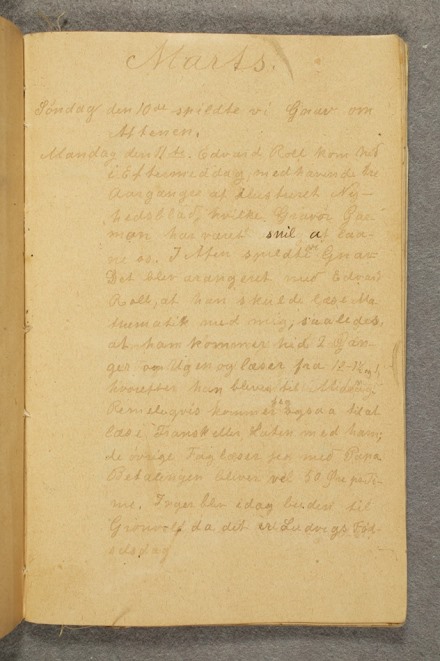 Marts.
Søndag den 10de spildte vi Gnav om
Aftenen.
Mandag den 11te. Edvard Roll kom hid
i Eftermiddag, medhavende tre
Aargange af Illustreret Ny-
hedsblad, hvilke Gravør
man har været snil at laa-
ne os. I Aften spildte vi Gnav.
Det blev arangeret med Edvard
Roll, at han skulde læse Ma-
thematik med mig, saaledes,
at han kommer hid 2 Gan-
ge om Ugen og læser fra 12-1½,
hvorefter han bliver til Middag.
Rimeligvis kommer jeg ogsaa til at
læse Fransk eller Latin med ham;
de øvrige Fag læser jeg med Papa
Betalingen bliver vel 50 Øre per Ti-
me. Inger blev idag buden til
Grønvold da det er Ludvigs Fød-
selsdag